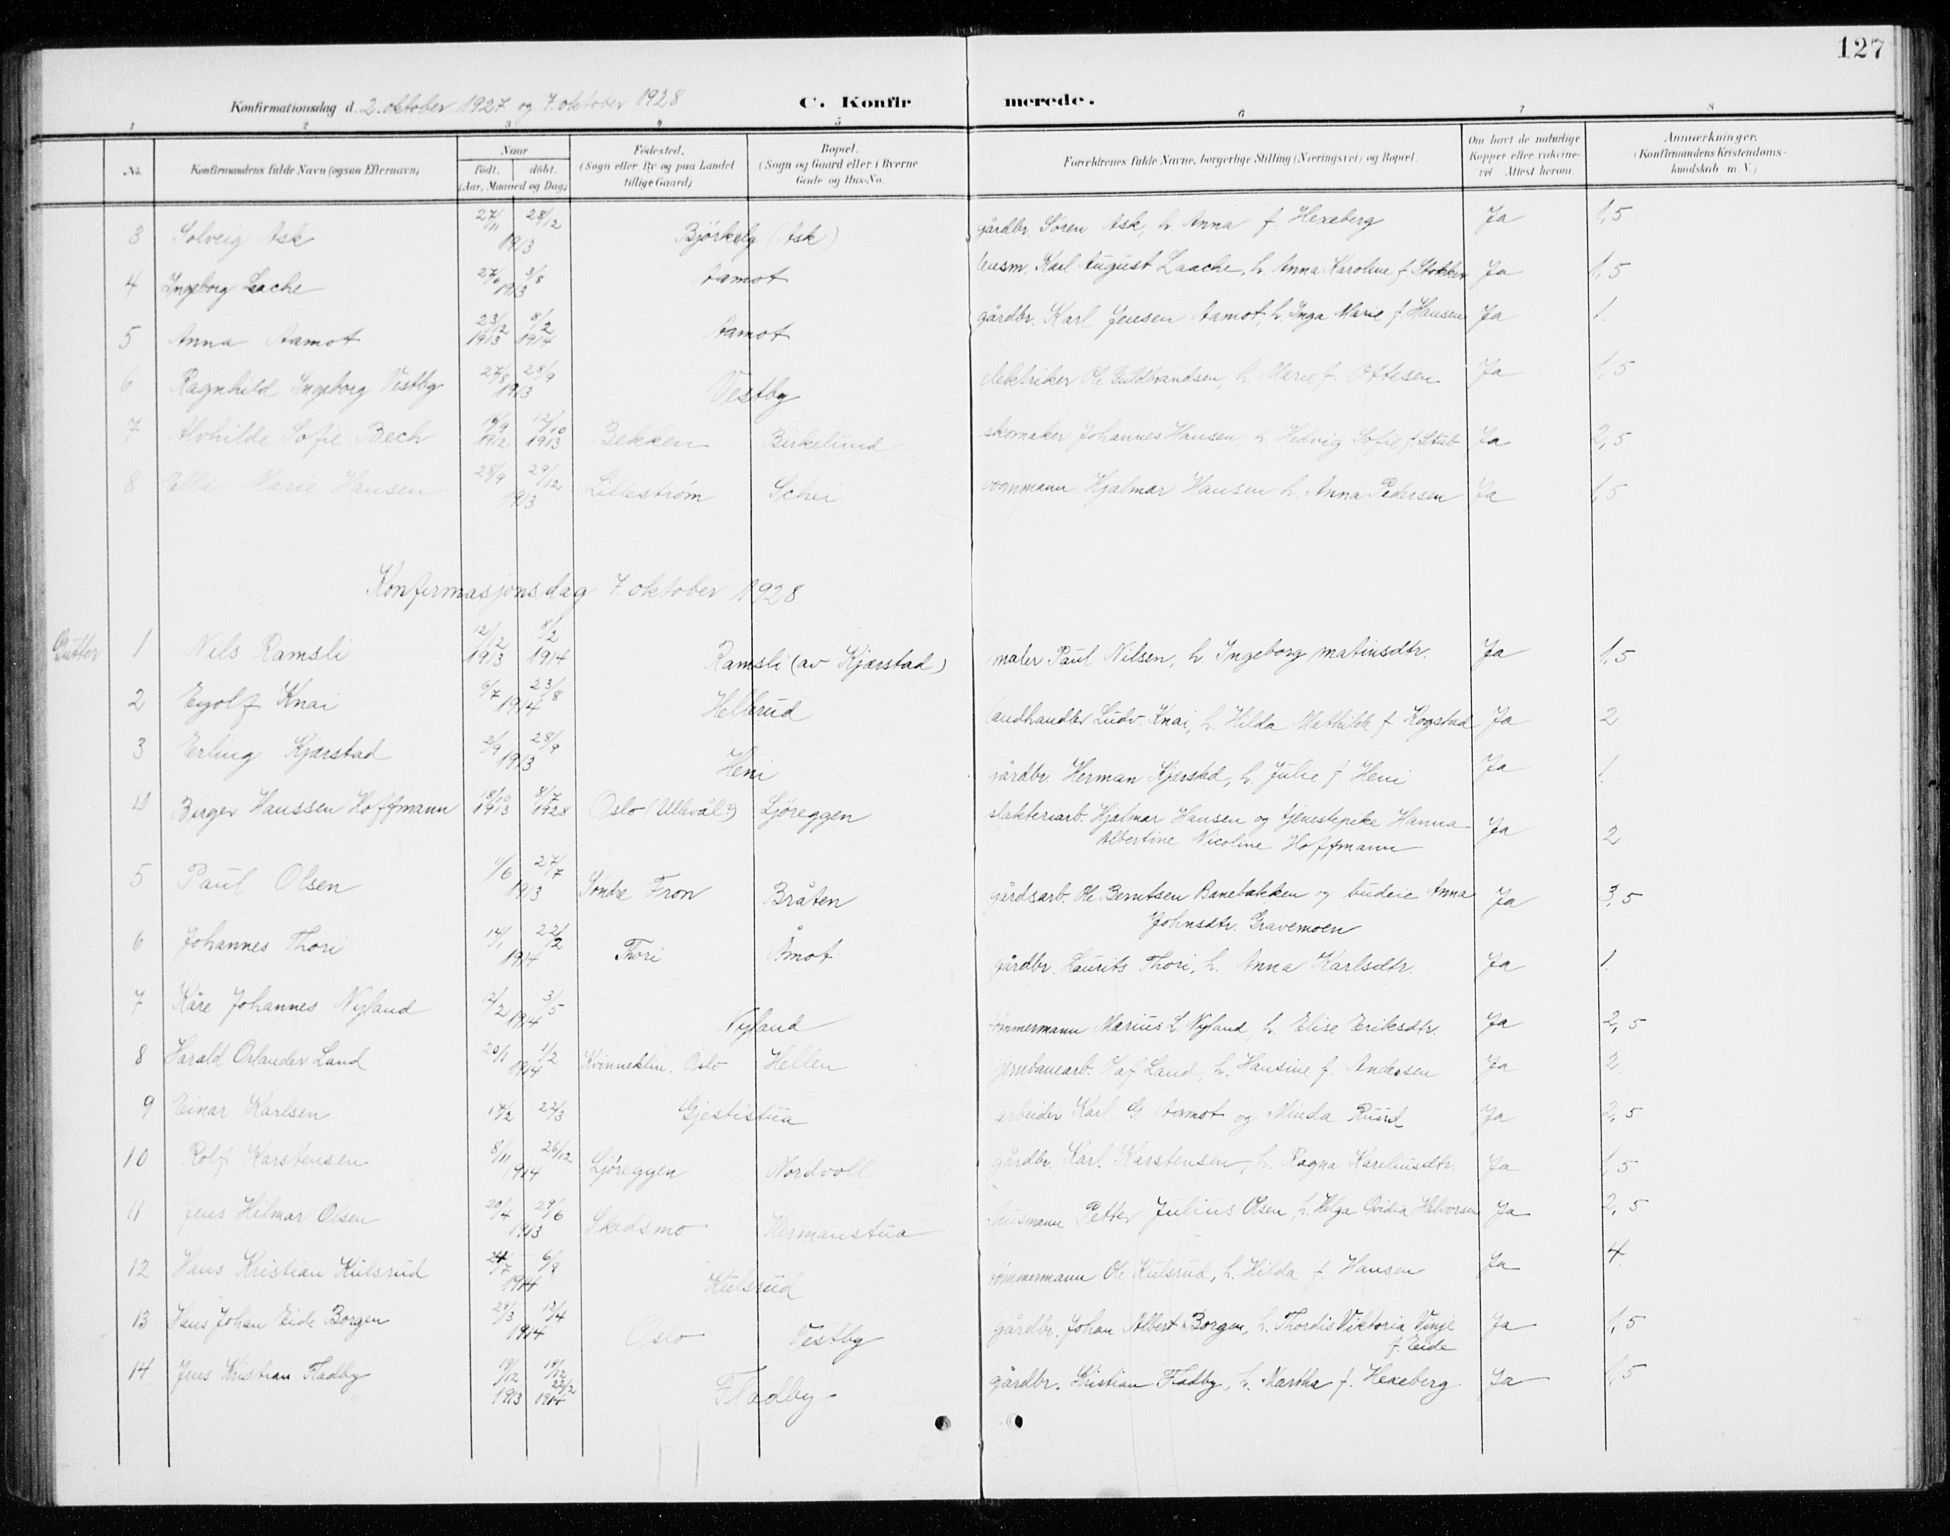 127
Konfirmationsdag d. 2. oktober 1927 og 7. oktober 1928 C. Konfirmerede.
1 2 3 4 5 6 7 8
No. Konfirmandens fulde Navn (ogsaa Efternavn) Naar født, døbt. (Aar, Maaned og Dag) Fødested. (Sogn eller By og paa Landet tillige Gaard) Bopæl. (Sogn og Gaard eller i Byerne Gade og Hus-No. Forældrenes fulde Navne, borgerlige Stilling (Næringsvei) og Bopæl. Om havt de naturlige Kopper eller vakcineret. Attest herom. Anmærkninger. (Konfirmandens Kristendomskundskab m. V.)
3 Solveig Ask 27/11 28/12 1913 Bjørkely (Ask) gårdbr. Søren Ask, h. Anna f. Hexeberg Ja 1,5
4 Ingeborg Lache 27/6 3/8 1913 Aamot husm. Karl August Laache, h. Anna Karoline f. Stokker Ja 1,5
5 Anna Aamot 23/12 1913 8/2 1914 Aamot gårdbr. Karl Jensen Aamot, h. Inga Marie f. Hansen Ja 1.
6 Ragnhild Ingeborg Vestby 27/8 28/9 1913 Vestby elektriker Ole Guldbrandsen, h. Marie f. Oftesen Ja 1,5
7 Alvhilde Sofie Bech 15/9 1912 12/10 1913 Bekken Birkelund skomaker Johannes Hansen, h. Hedvig Sofie f. Stub Ja 2,5
8 Ella Marie Hansen 28/9 29/12 1913 Lillestrøm Schei vognmann Hjalmar Hansen, h. Anna Pedersen Ja 1,5
Konfirmasjonsdag 7. oktober 1928
Gutter 1 Nils Ramsli 12/12 1913 8/2 1914 Ramsli (av Kjærstad) maler Paul Nilsen, h. Ingeborg Matiusdtr. Ja 1,5
2 Eyolf Knai 6/7 23/8 1914 Hellerud landhandler Ludv. Knai, h. Hilda Mathilde f. Kogstad Ja 2
3 Erling Kjærstad 2/9 28/9 1913 Heni gårdbr. Herman Kjærstad, h. Julie f. Heni Ja 1.
4 Birger Hanssen Hoffmann 18/10 1913 8/7 1928 Oslo (Ullevål?) Ljøreggen slakteriarb. Hjalmar Hansen og tjenestepike Hanna Ja 2
Albertine Nicoline Hoffmann
5 Paul Olsen 1/6 27/7 1913 Søndre Fron Bråten gårdsarb. Ole Berntsen Banebakken og budeie Anna Ja 3,5
Johnsdtr. Gravemoen
6 Johannes Thori 14/1 22/2 1914 Thori Åmot gårdbr. Laurits Thori, h. Anna Karlsdtr. Ja 1.
7 Kåre Johannes Nyland 12/2 3/5 1914 Nyland tømmermann Marius L. Nyland, h. Elise Eriksdtr. Ja 2,5
8 Harald Orlander Land 20/1 1/2 1914 Kvinneklin. Oslo Hellen jernbanearb. Olaf Land, h. Hansine f. Andersen Ja 2.
9 Einar Karlsen 17/2 22/3 Gjestistua arbeider Karl G Aamot og Minda Ruud Ja 2,5
10 Rolf Karstensen 8/11 26/12 1914 Ljøreggen Nordvoll gårdbr. Karl Karstensen, h. Ragna Ja 1,5
11 Jens Hilmar Olsen 20/4 29/6 1913 Skedsmo Hermanstua husmann Petter Julius Olsen h. Helga Ovidia Halvorsen Ja 2,5
12 Hans Kristian Kulsrud 24/7 6/9 1914 Kulsrud tømmermann Ole Kulsrud, h. Hilda f. Hansen Ja 4.
13 Hans Johan Eide Borgen 29/3 12/4 1914 Oslo Vestby gårdbr. Johan Albert Borgen, h. Thordis Viktoria Vinje Ja 1,5
f. Eide
14 Jens Kristian Fladby 19/12 1913 22/2 1914 Fladby gårdbr. Kristian Fladby, h. Martha f. Hexeberg Ja 1,5